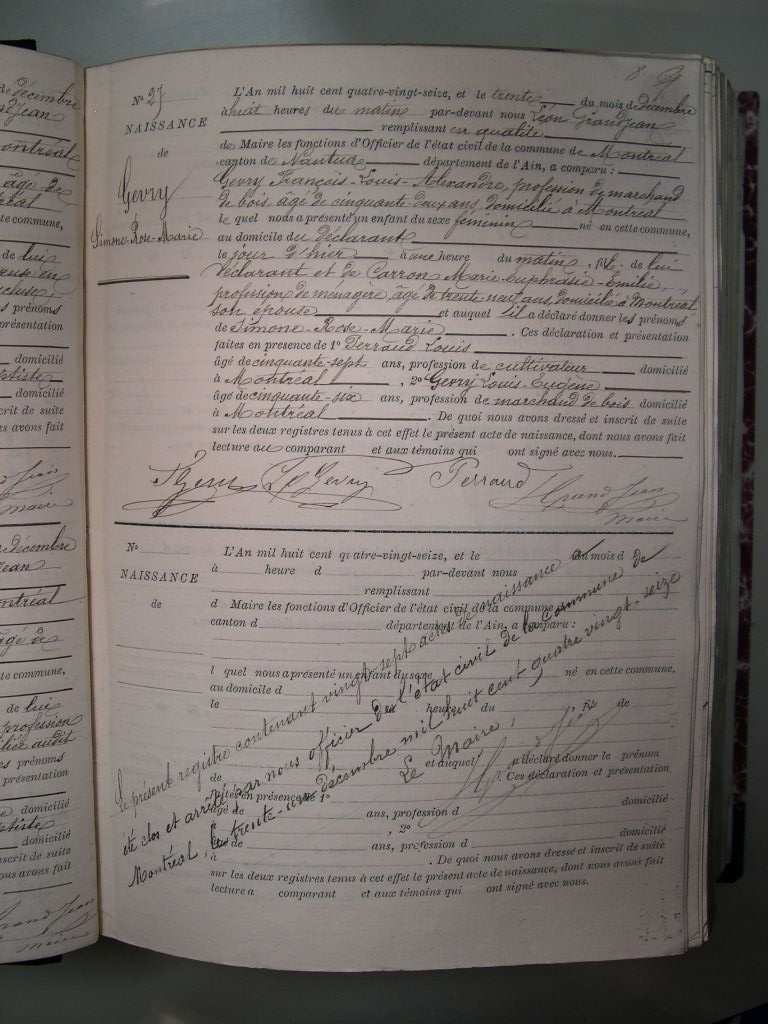 décembre
Jean
Montréal
âgé de
cette commune,
de lui
prénoms
présentation
domicilié
Baptiste
domicilié
inscrit de suite
nous avons fait
Grand Jean
maire
décembre
Jean
Montréal
âgé de
cette commune,
de lui
profession
prénoms
présentation
domicilié
Baptiste
domicilié
inscrit de suite
nous avons fait
Grand Jean
maire
8
No 27
NAISSANCE
de
Gevry
Simone-Rose-Marie
L'An mil huit cent quatre-vingt-seize, et le trente du mois de décembre
à huit heures du matin par-devant nous Léon GrandJean
remplissant en qualité
de Maire les fonctions d'Officier de l'état civil de la commune de Montréal
canton de Nantua département de l'Ain, a comparu :
Gevry François-Louis-Alexandre, profession de marchand
de bois âgé de cinquante deux ans domicilié à Montréal
le quel nous a présenté un enfant du sexe féminin né en cette commune,
au domicile du déclarant
le jour d'hier à une heure du matin, fille de lui
déclarant et de Carron Marie-Euphrasie-Emilie,
profession de ménagère âgée de trente neuf ans, domiciliée à Montréal
son épouse et auquel il a déclaré donner les prénoms
de Simone-Rose-Marie . Ces déclaration et présentation
faites en présence de 1o Perraud Louis
âgé de cinquante-sept ans, profession de cultivateur domicilié
à Montréal , 2o Gevry Louis-Eugène
âgé de cinquante-six ans, profession de marchand de bois domicilié
à Montréal . De quoi nous avons dressé et inscrit de suite
sur les deux registres tenus à cet effet le présent acte de naissance, dont nous avons fait
lecture au comparant et aux témoins qui ont signé avec nous.
Gevry Perraud Grand Jean
maire
No
NAISSANCE
de
L'An mil huit cent quatre-vingt-seize, et le du mois d
à heure d par-devant nous
remplissant
d Maire les fonctions d'Officier de l'état civil de la commune
canton d département de l'Ain, a comparu :
l quel nous a présenté un enfant du sexe né en cette commune,
au domicile d
le heure du , fils de
de et auquel a déclaré donner les prénom
de Ces déclaration et présentation
faites en présence de 1o
âgé de ans, profession d domicilié
à , 2o
âgé de ans, profession d domicilié
à . De quoi nous avons dressé et inscrit de suite
sur les deux registres tenus à cet effet le présent acte de naissance, dont nous avons fait
lecture a comparant et aux témoins qui ont signé avec nous.
Le présent registre contenant vingt-sept actes de naissance a
été clos et arrêté par nous officier de l'état civil de la commune de
Montréal, le trente-un décembre mil huit cent quatre vingt-seize
Le Maire,